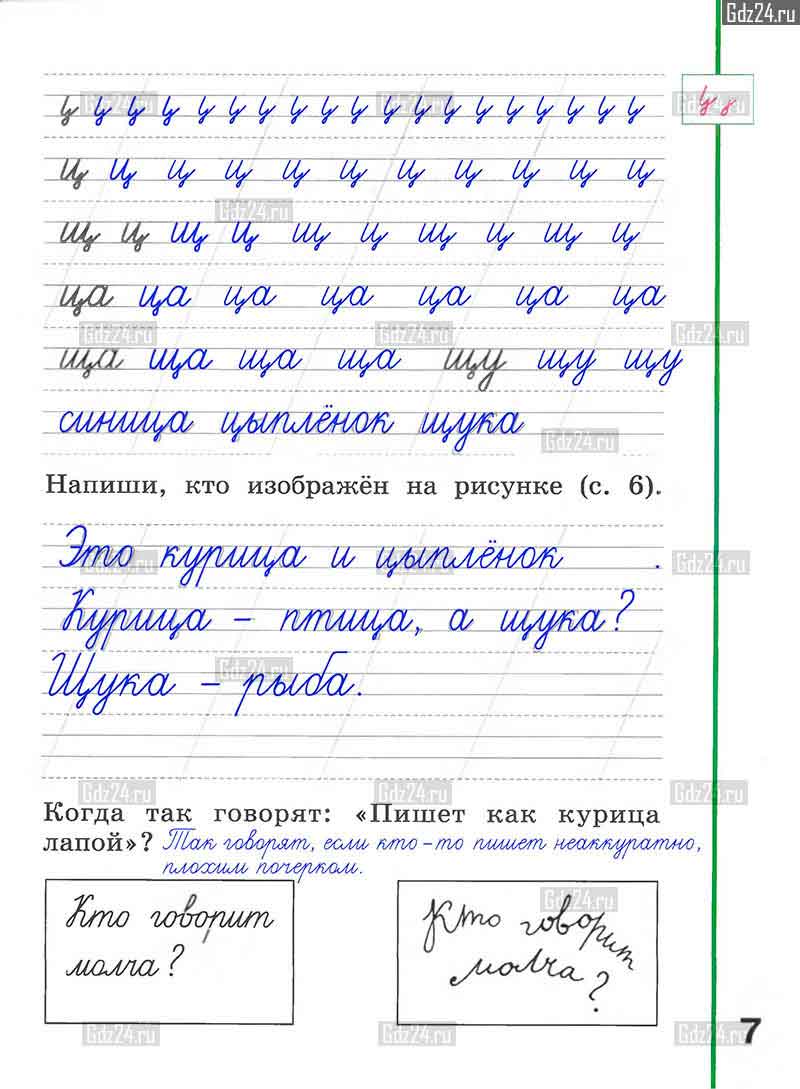 Gdz24.ru
ц ц ц ц ц ц ц ц ц ц ц ц ц ц ц ц ц ц
ц ц ц ц ц ц ц ц ц ц ц
щ ц щ ц щ ц щ ц щ ц
ца ца ца ца ца ца ца
ща ща ща ща щу щу щу
синица цыплёнок щука
Напиши, кто изображён на рисунке (с. 6).
Это курица и цыплёнок .
Курица – птица, а щука?
Щука – рыба.
Когда так говорят: «Пишет как курица
лапой»? Так говорят, если кто-то пишет неаккуратно,
плохим почерком.
Кто говорит
молча?
Кто говорит
молча?
7